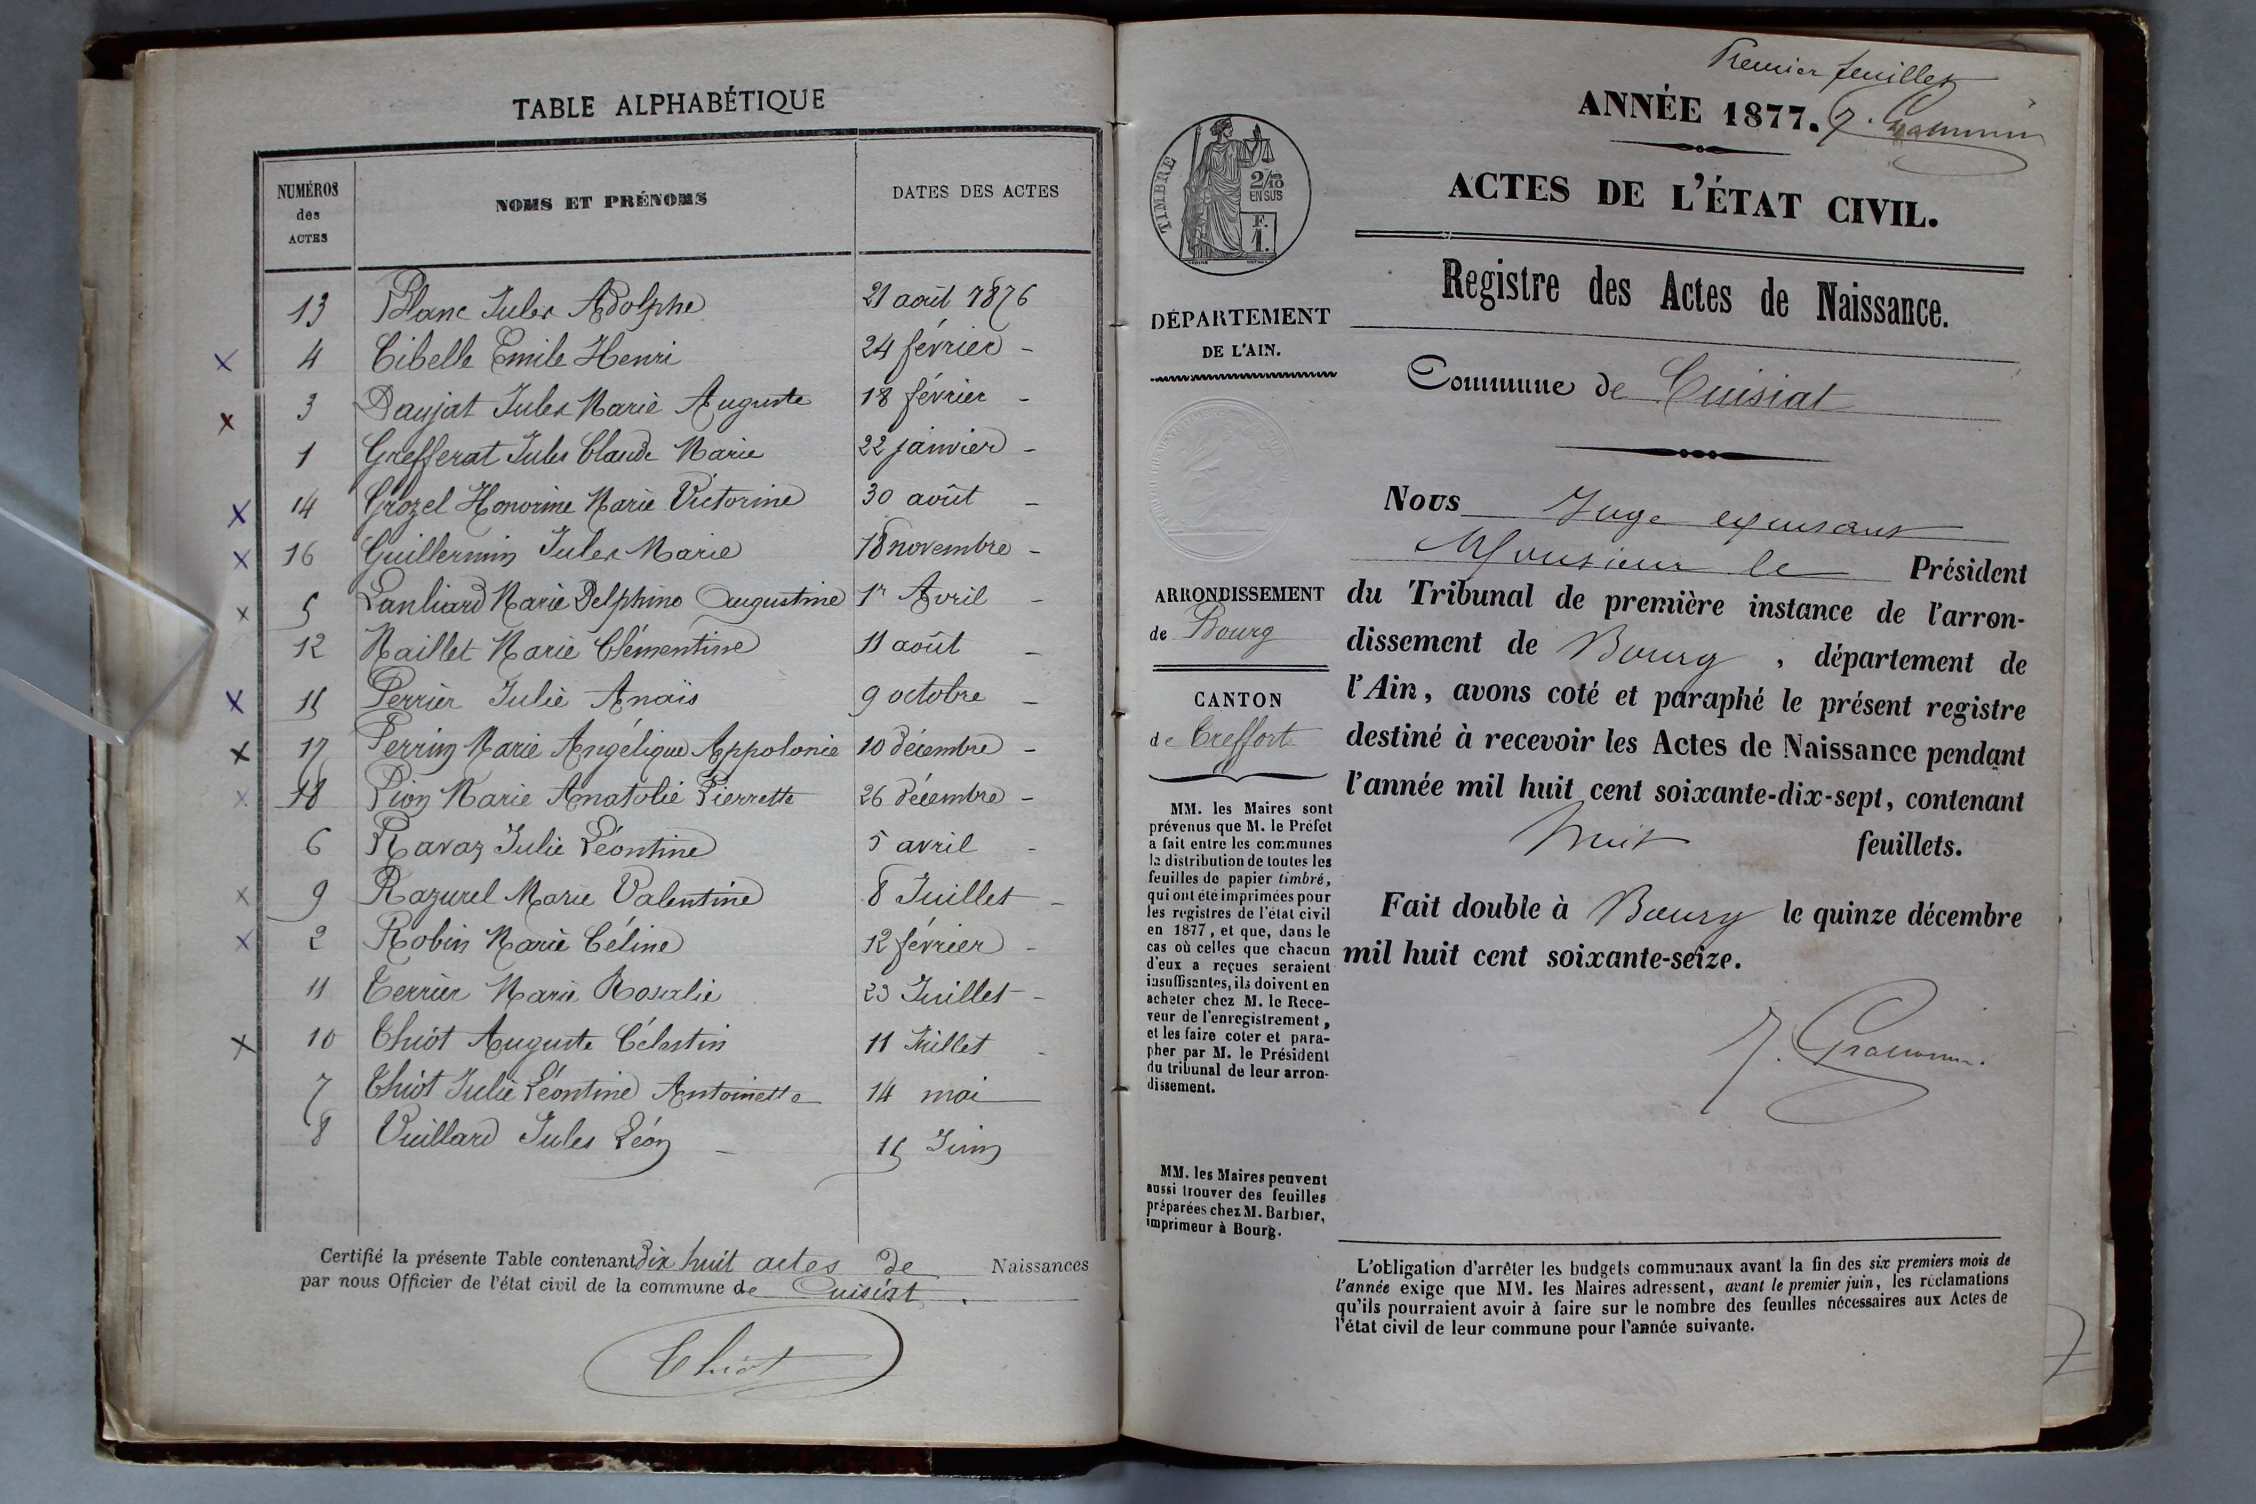 TABLE ALPHABÉTIQUE
NUMÉROS des ACTES NOMS ET PRÉNOMS DATES DES ACTES
13 Blanc Jules Adolphe 21 août 1876
4 Cibelle Emile Henri 24 février -
3 Daujat Jules Marie Auguste 18 février -
1 Grefferat Jules Claude Marie 22 janvier -
14 Grozel Honorine Marie Victorine 30 août -
16 Guillermin Jules Marie 18 novembre -
5 Lanliard Marie Delphine Augustine 1er Avril -
12 Maillet Marie Clémentine 11 août -
15 Perrier Julie Anaïs 9 octobre -
17 Perrin Marie Angélique Appolonie 10 décembre -
18 Pion Marie Anatolie Pierrette 26 décembre -
6 Ravaz Julie Léontine 5 avril -
9 Razurel Marie Valentine 8 Juillet -
2 Robin Marie Céline 12 février -
11 Terrier Marie Rosalie 23 Juillet -
10 Thiot Auguste Célestin 11 Juillet -
7 Thiot Julie Léontine Antoinette 14 mai
8 Vuillard Jules Léon - 15 Juin
Certifié la présente Table contenant dix huit actes de Naissances
par nous Officier de l'état civil de la commune de Cuisiat.
Thiot
Premier feuillet
ANNÉE 1877.
ACTES DE L'ÉTAT CIVIL.
Registre des Actes de Naissance.
Commune de Cuisiat
TIMBRE
2/10
EN SUS
F.
1.
DÉPARTEMENT
DE L'AIN.
ARRONDISSEMENT
de Bourg
CANTON
de Treffort
MM. les Maires sont
prévenus que M. le Préfet
a fait entre les communes
la distribution de toutes les
feuilles de papier timbré,
qui ont été imprimées pour
les registres de l'état civil
en 1877, et que, dans le
cas où celles que chacun
d'eux a reçues seraient
insuffisantes, ils doivent en
acheter chez M. le Rece-
veur de l'enregistrement,
et les faire coter et para-
pher par M. le Président
du tribunal de leur arron-
dissement.
MM. les Maires peuvent
aussi trouver des feuilles
préparées chez M. Barbier,
imprimeur à Bourg.
Nous Juge
Monsieur le Président
du Tribunal de première instance de l'arron-
dissement de Bourg, département de
l'Ain, avons coté et paraphé le présent registre
destiné à recevoir les Actes de Naissance pendant
l'année mil huit cent soixante-dix-sept, contenant
huit feuillets.
Fait double à Bourg le quinze décembre
mil huit cent soixante-seize.
L'obligation d'arrêter les budgets communaux avant la fin des six premiers mois de
l'année exige que MM. les Maires adressent, avant le premier juin, les réclamations
qu'ils pourraient avoir à faire sur le nombre des feuilles nécessaires aux Actes de
l'état civil de leur commune pour l'année suivante.